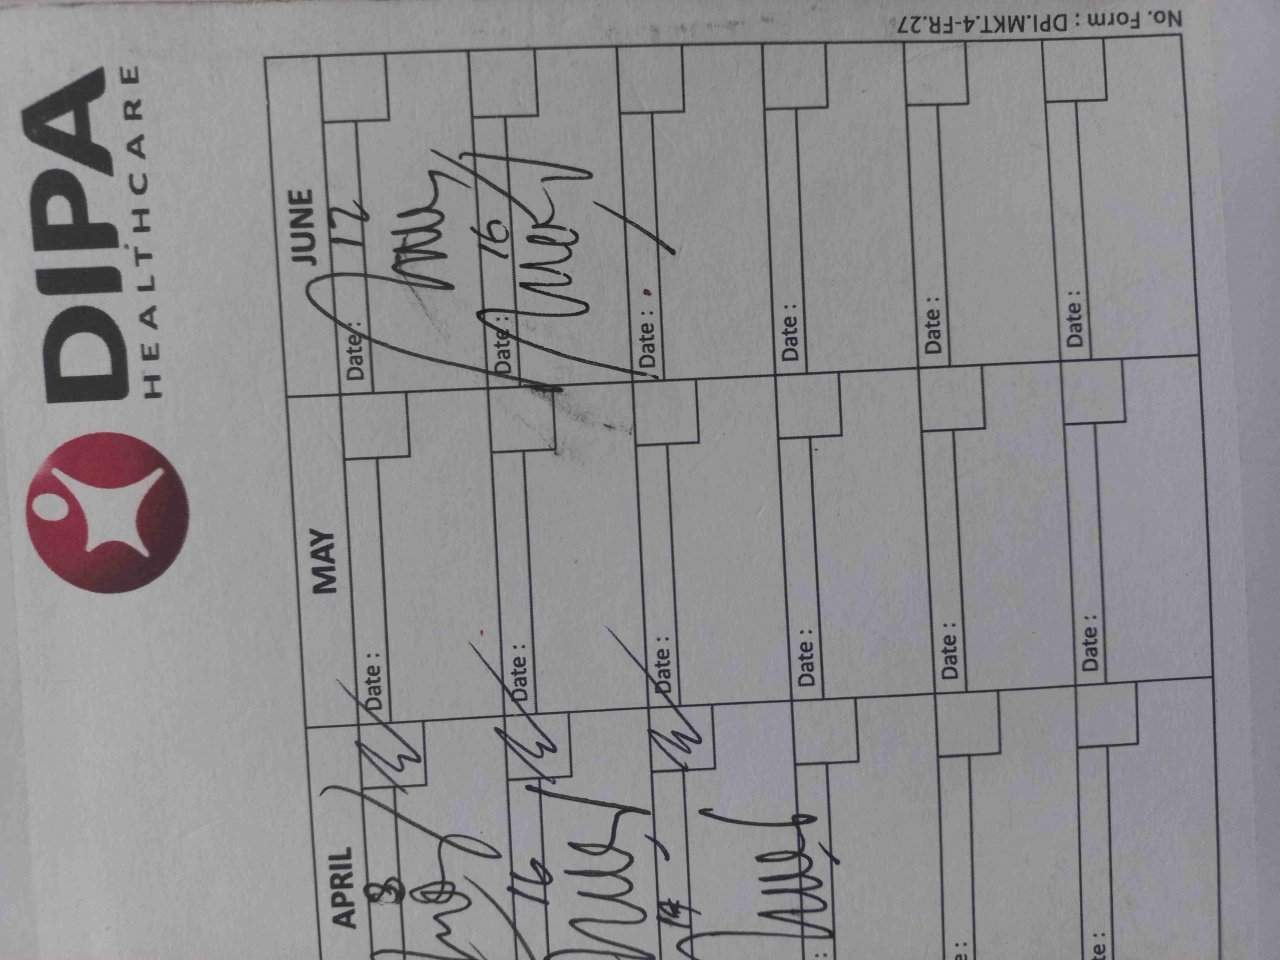 DIPA
HEALTHCARE
No. Form : DPI.MKT.4-FR.27
APRIL
MAY
JUNE
8
Date :
Date : 12
16
Date :
Date : 16
Date :
Date :
:
Date :
Date :
e :
Date :
Date :
te :
Date :
Date :